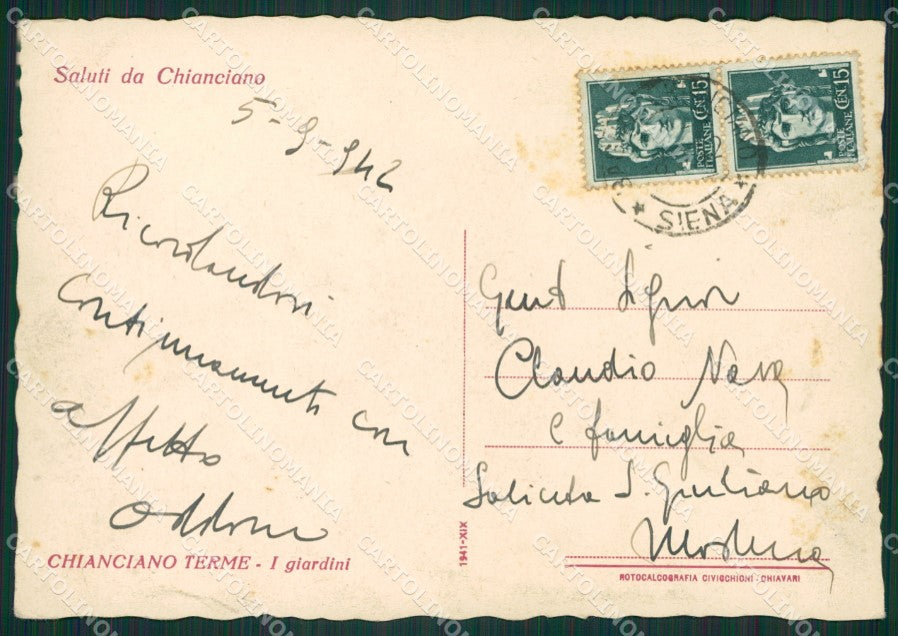 Saluti da Chianciano
5-9-942
Ricordandovi
continuamente con
affetto
Oddone
CHIANCIANO TERME - I giardini
POSTE ITALIANE CENT. 15
POSTE ITALIANE CENT. 15
SIENA
Gent Signor
Claudio Nava
e famiglia
Saliceta S. Giuliano
Modena
1941-XIX
ROTOCALCOGRAFIA CIVICCHIONI - CHIAVARI
CARTOLINOMANIA